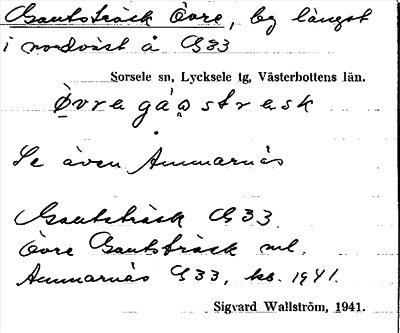 Gautsträsk Övre, by längst
i nordväst å G33
Sorsele sn, Lycksele tg, Västerbottens län.
Övre gåsstrask
Se även Ammarnäs
Gautsträsk G33
Övre Gautsträsk ml.
Ammarnäs G33, kb. 1941.
Sigvard Wallström, 1941.